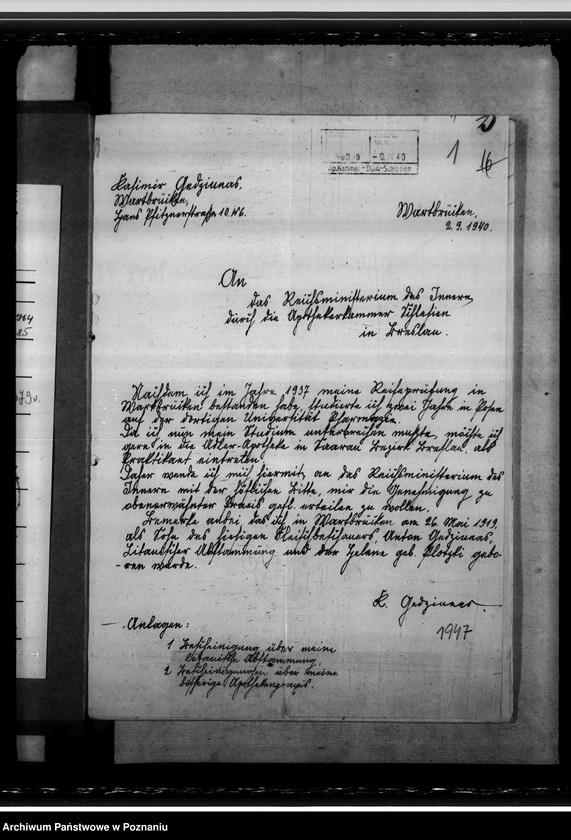 1 16
- 6. IX. 40
Ap.Kammer-DOA-Schlesien
Kasimir Gedziunas,
Wartbrücken,
Hans Pfitznerstraße 10. W6.
Wartbrücken,
2. 9. 1940.
An
das Reichsministerium des Innern,
durch die Apothekerkammer Schlesien
in Breslau.
Nachdem ich im Jahre 1937 meine Reifeprüfung in
Wartbrücken bestanden habe, studierte ich zwei Jahre in Posen
an der dortigen Universität Pharmazie.
Da ich nun mein Studium unterbrechen mußte, möchte ich
gern in die Adler-Apotheke in Saarau Bezirk Breslau, als
Praktikant eintreten.
Daher wende ich mich hiermit an das Reichsministerium des
Innern mit der höflichen Bitte, mir die Genehmigung zu
obenerwähnter Praxis gefl. erteilen zu wollen.
Bemerke anbei das ich in Wartbrücken am 26. Mai 1919,
als Sohn des hiesigen Fleischbeschauers, Anton Gedziunas,
Litauischer Abstammung und der Helene geb. Plotzki gebo-
-ren wurde.
K. Gedziunas
1947
Anlagen:
1 Bescheinigung über meine
litauische Abstammung.
2 Bescheinigungen über meine
bisherige Apothekenpraxis.
Archiwum Państwowe w Poznaniu